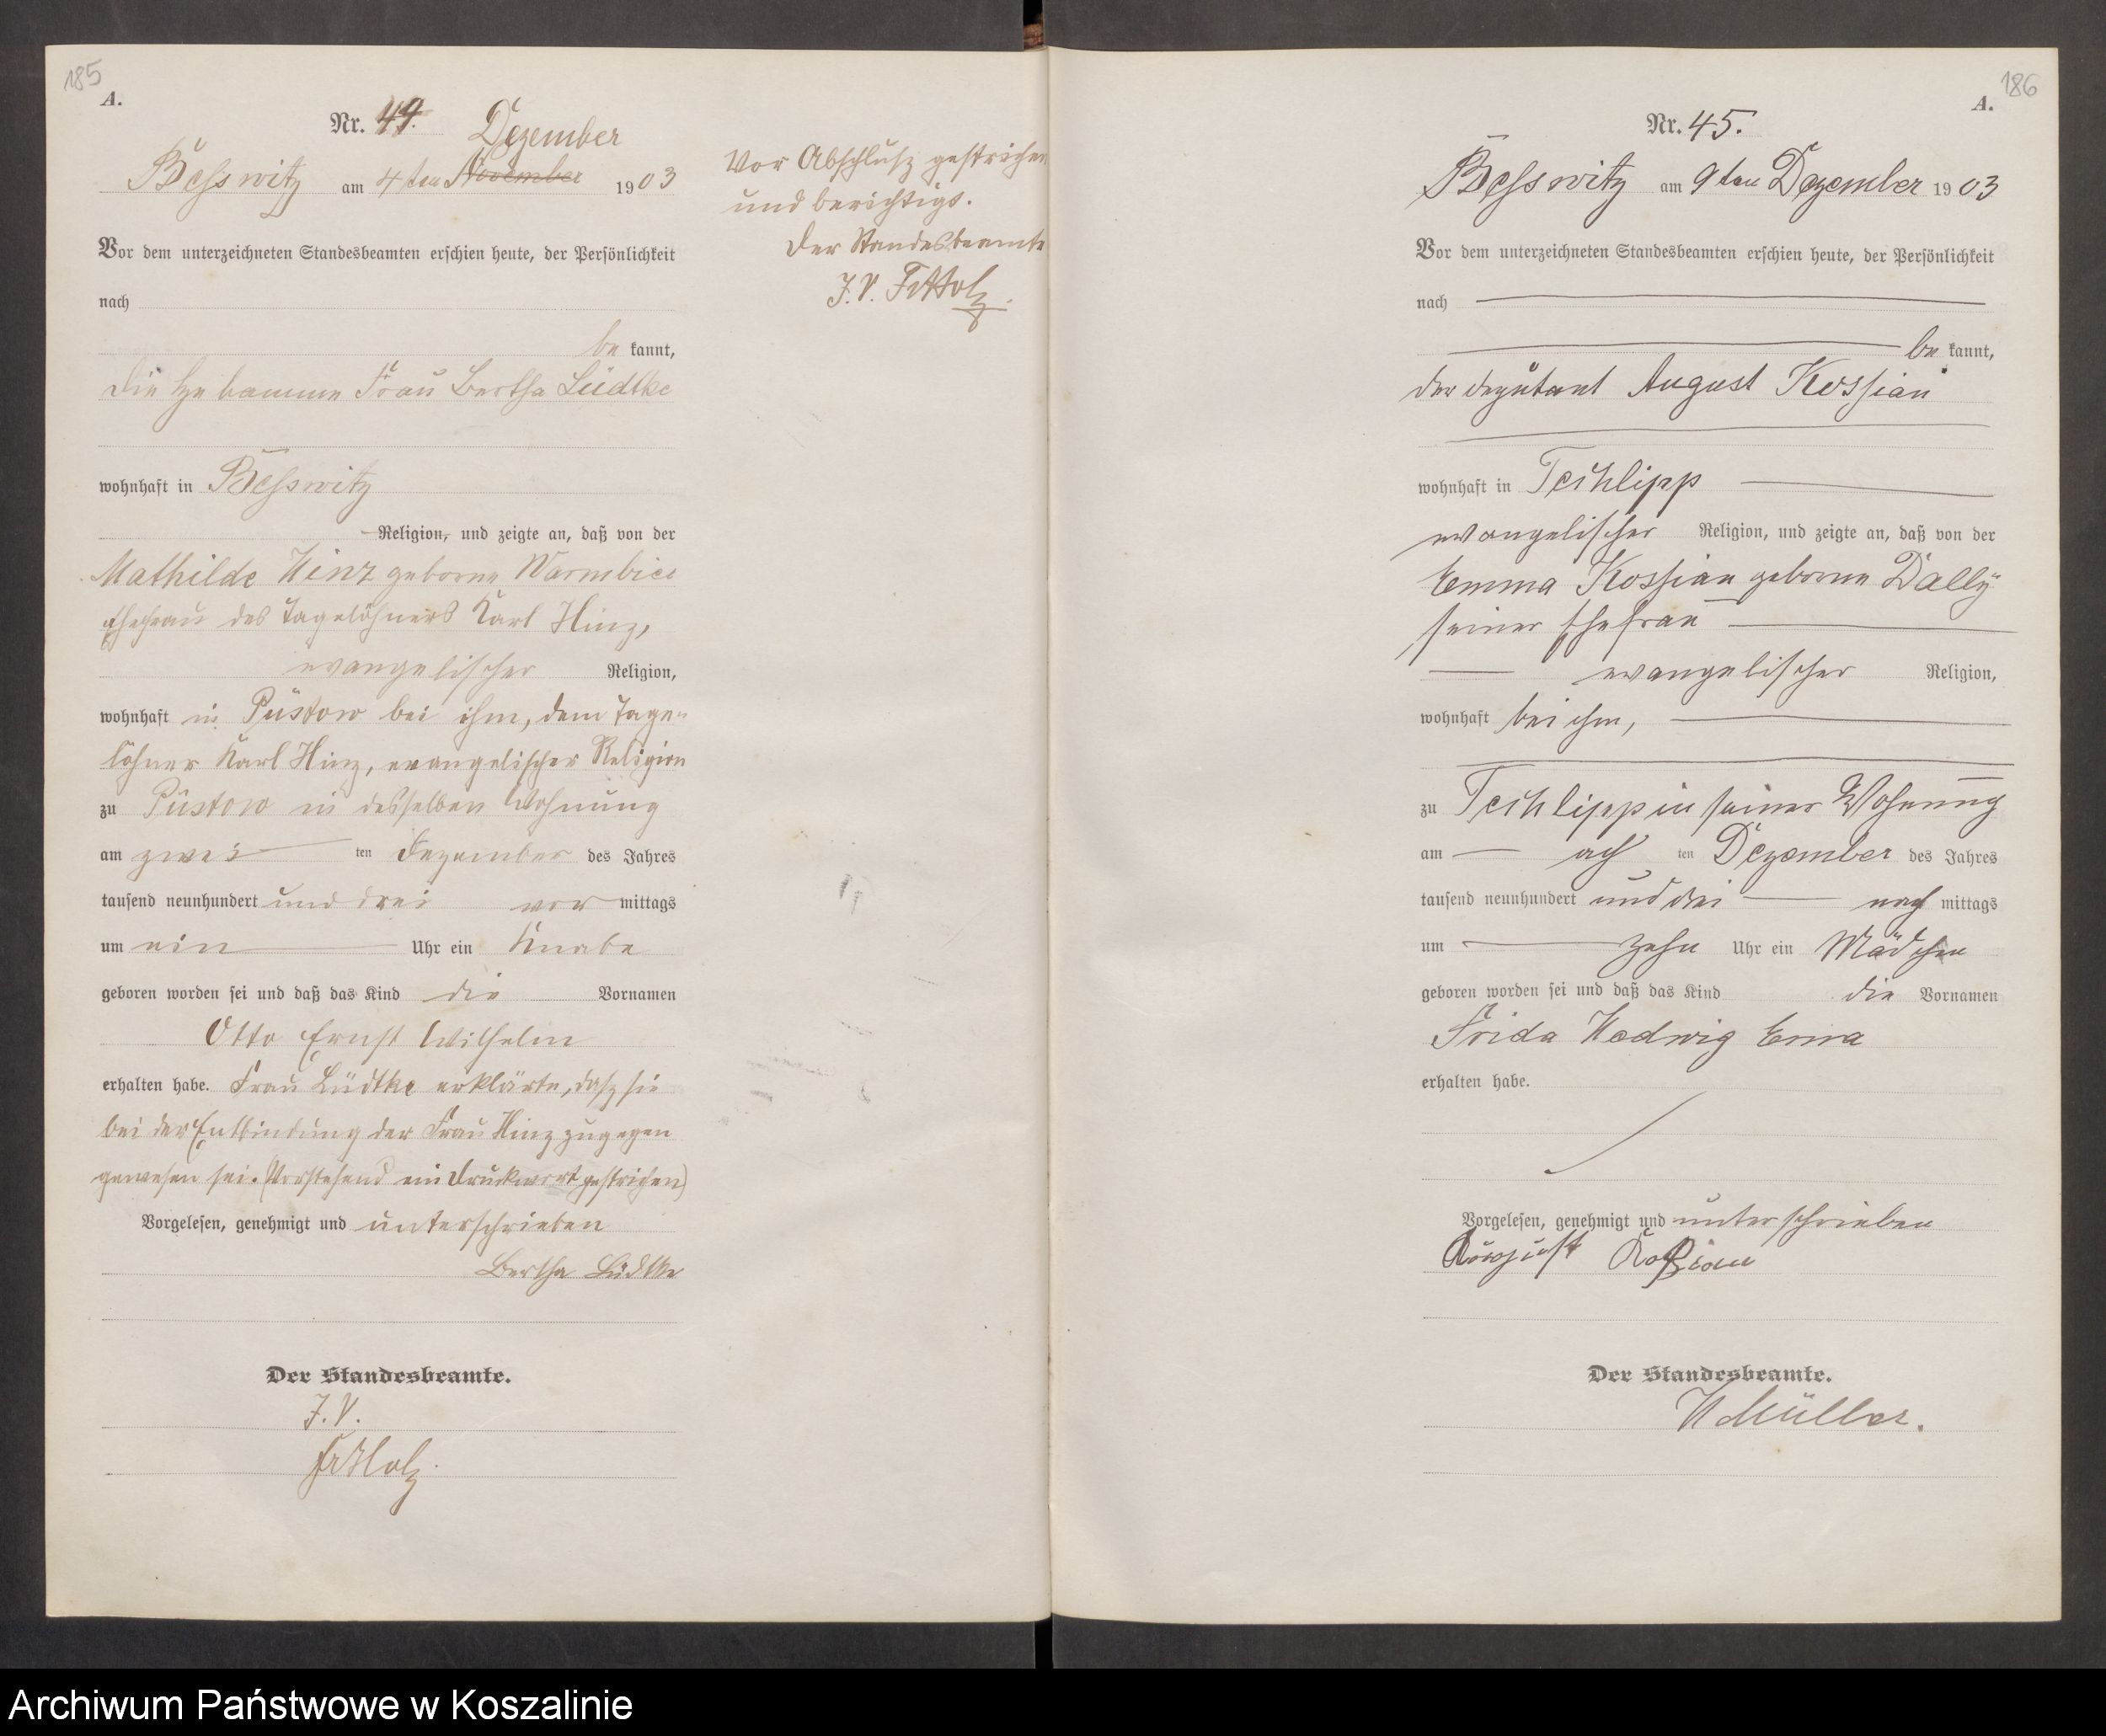 185
A.
Nr. 44.
Dezember
Besswitz am 4ten November 1903
Vor dem unterzeichneten Standesbeamten erschien heute, der Persönlichkeit
nach
be kannt,
die Hebamme Frau Bertha Lüdtke
wohnhaft in Besswitz
Religion, und zeigte an, daß von der
Mathilde Hinz geborne Warmbier
Ehefrau des Tagelöhners Karl Hinz,
evangelischer Religion,
wohnhaft in Püstow bei ihm, dem Tage-
löhner Karl Hinz, evangelischer Religion
zu Püstow in desselben Wohnung
am zwei ten Dezember des Jahres
tausend neunhundert und drei vor mittags
um ein Uhr ein Knabe
geboren worden sei und daß das Kind die Vornamen
Otto Ernst Wilhelm
erhalten habe. Frau Lüdtke erklärte, dasz sie
bei der Entbindung der Frau Hinz zugegen
gewesen sei. (Vorstehend ein Druckwort gestrichen)
Vorgelesen, genehmigt und unterschrieben
Bertha Lüdtke
Der Standesbeamte.
J. V.
Vor Abschlusz gestrichen
und berichtigt.
Der Standesbeamte
J. V.
186
A.
Nr. 45.
Besswitz am 9ten Dezember 1903
Vor dem unterzeichneten Standesbeamten erschien heute, der Persönlichkeit
nach
be kannt,
der Deputant August Kossian
wohnhaft in Techlipp
evangelischer Religion, und zeigte an, daß von der
Emma Kossian geborne Dally
seiner Ehefrau
evangelischer Religion,
wohnhaft bei ihm,
zu Techlipp in seiner Wohnung
am ach ten Dezember des Jahres
tausend neunhundert und drei nach mittags
um zehn Uhr ein Mädchen
geboren worden sei und daß das Kind die Vornamen
Frida Hedwig Erna
erhalten habe.
Vorgelesen, genehmigt und unterschrieben
August Koßian
Der Standesbeamte.
Müller.
Archiwum Państwowe w Koszalinie